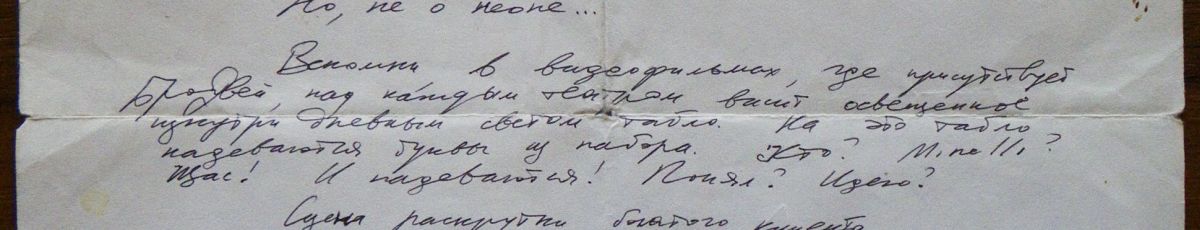 Но, не о неоне...
Вспомни в видеофильмах, где присутствует
Бродвей, над каждым театром висит освещенное
изнутри дневным светом табло. На это табло
надеваются буквы из набора. Кто? Minelli?
Щас! И надеваются! Понял? Идею?
Сцена раскрутки богатого клиента